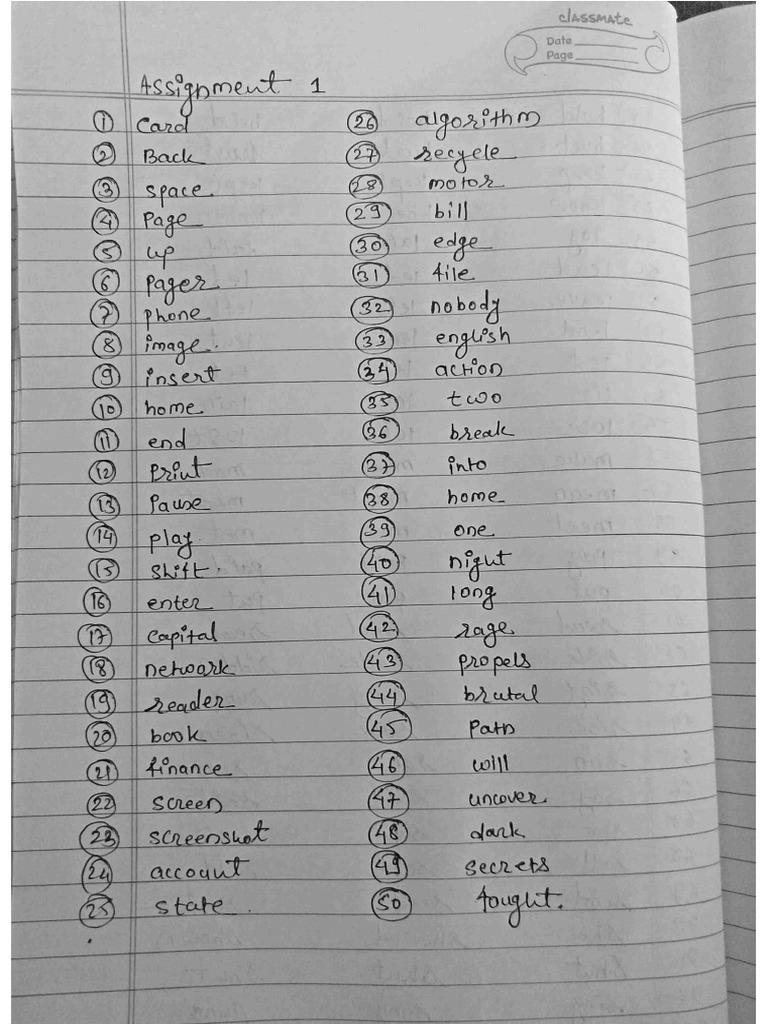 classmate
Date
Page
Assignment 1
1 Card
2 Back
3 space
4 Page
5 up
6 Pager
7 phone
8 image.
9 insert
10 home
11 end
12 Print
13 Pause
14 play.
15 Shift.
16 enter
17 capital
18 network
19 reader
20 book
21 finance
22 screen
23 screenshot
24 account
25 state.
26 algorithm
27 recycle
28 motor
29 bill
30 edge
31 file
32 nobody
33 english
34 action
35 two
36 break
37 into
38 home
39 one
40 night
41 long
42 rage
43 propels
44 brutal
45 Path
46 will
47 uncover
48 dark
49 secrets
50 fought.